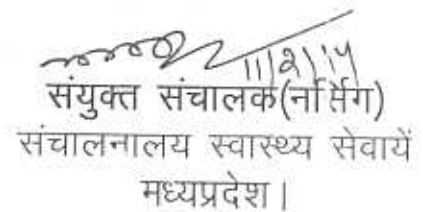 11/2/14
संयुक्त संचालक(नर्सिंग)
संचालनालय स्वास्थ्य सेवायें
मध्यप्रदेश।